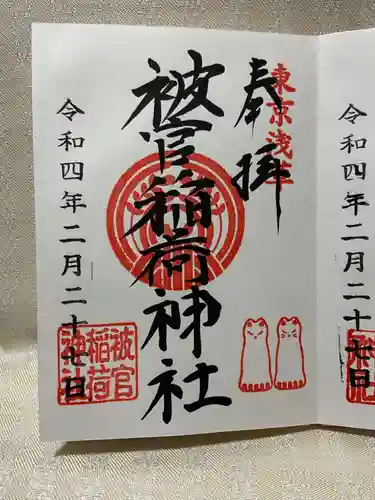 東京浅草
奉拝
被官稲荷神社
被官
稲荷
神社
令和四年二月二十七日
令和四年二月二十七日